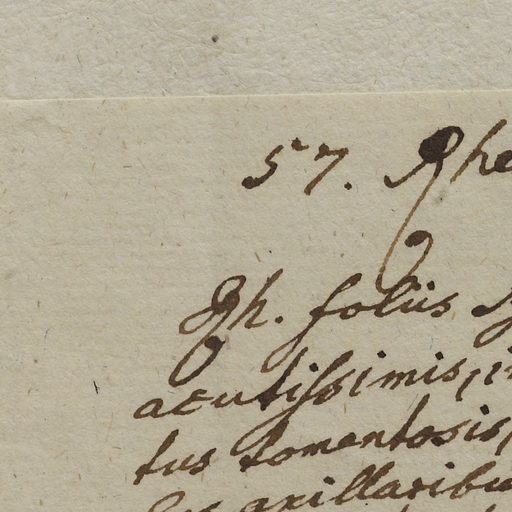 57. Rhe
Rh. foliis
acutissimis, i
tus tomentosis,
axillaribu